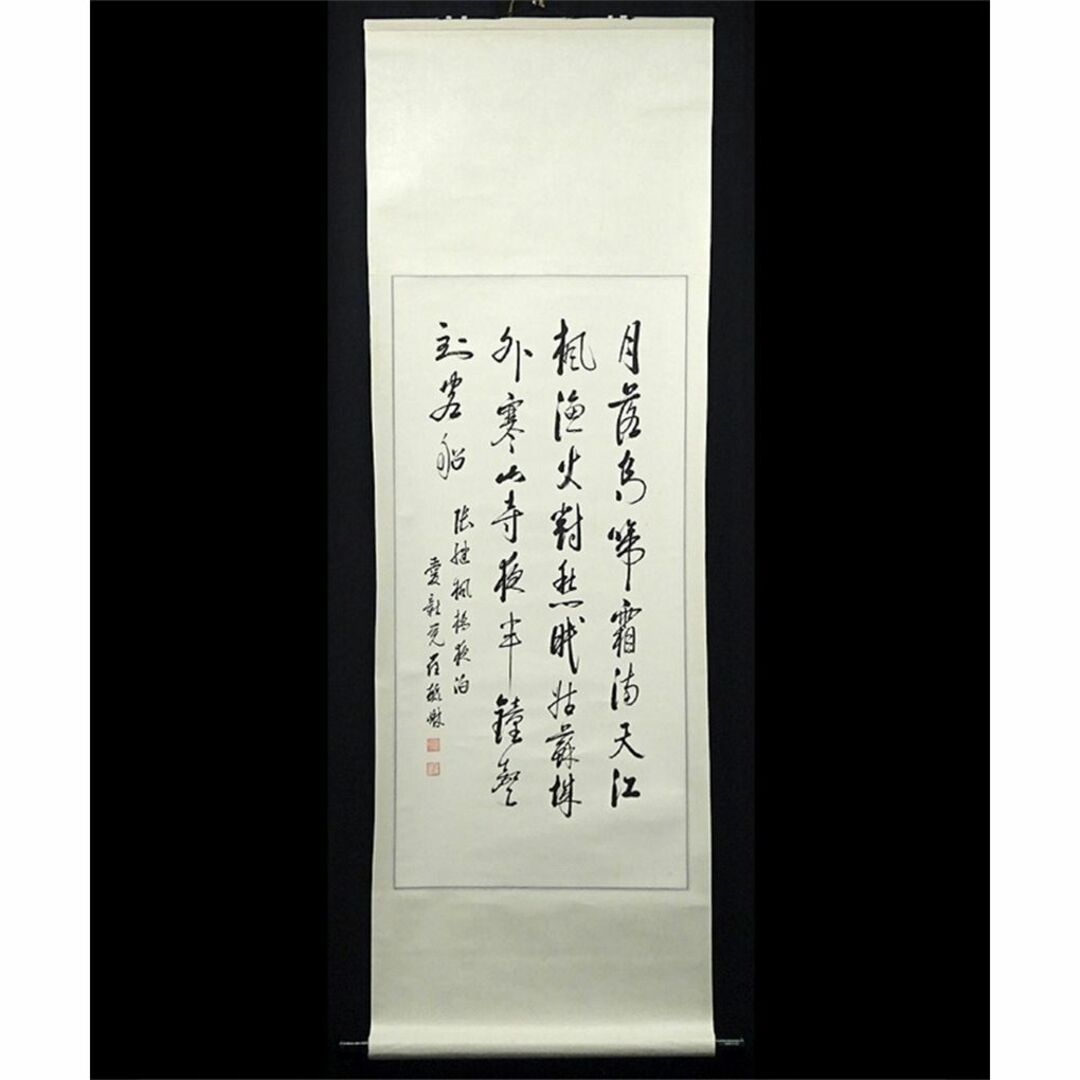 月落烏啼霜滿天江
楓漁火對愁眠姑蘇城
外寒山寺夜半鐘聲
到客船
張繼楓橋夜泊
愛新覺羅毓